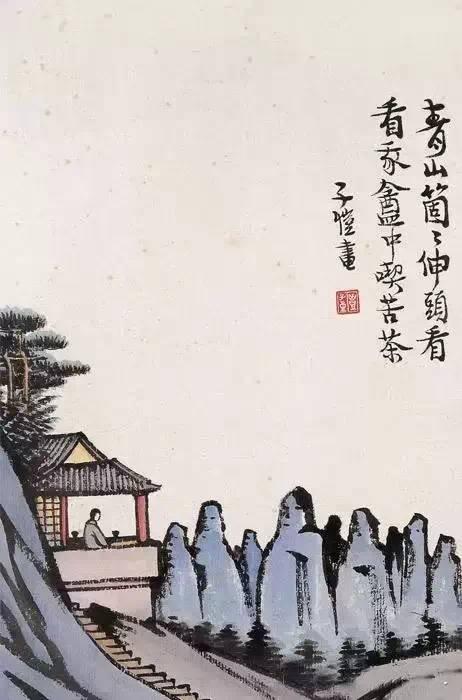 青山箇〻伸頭看
看我盦中喫苦茶
子愷畫